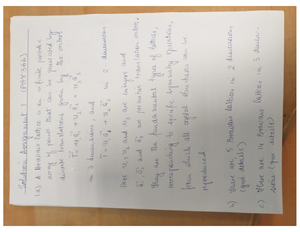 Solution Assignment 1 (PHY366)
1(a) A Bravais lattice is an infinite periodic
array of points that can be generated by
discrete translations given by the vectors
r⃗ = u₁a⃗₁ + u₂a⃗₂ + u₃a⃗₃
in 3 dimensions, and
r⃗ = u₁a⃗₁ + u₂a⃗₂ in 2 dimensions
Here u₁, u₂ and u₃ are integers and
a⃗₁, a⃗₂ and a⃗₃ are primitive translation vectors.
They are the fundamental types of lattices,
corresponding to specific symmetry operations,
from which all crystal structures can be
reproduced
b) There are 5 Bravais lattices in 2 dimensions
(give details)
c) There are 14 Bravais lattices in 3 dimen-
sions (give details)